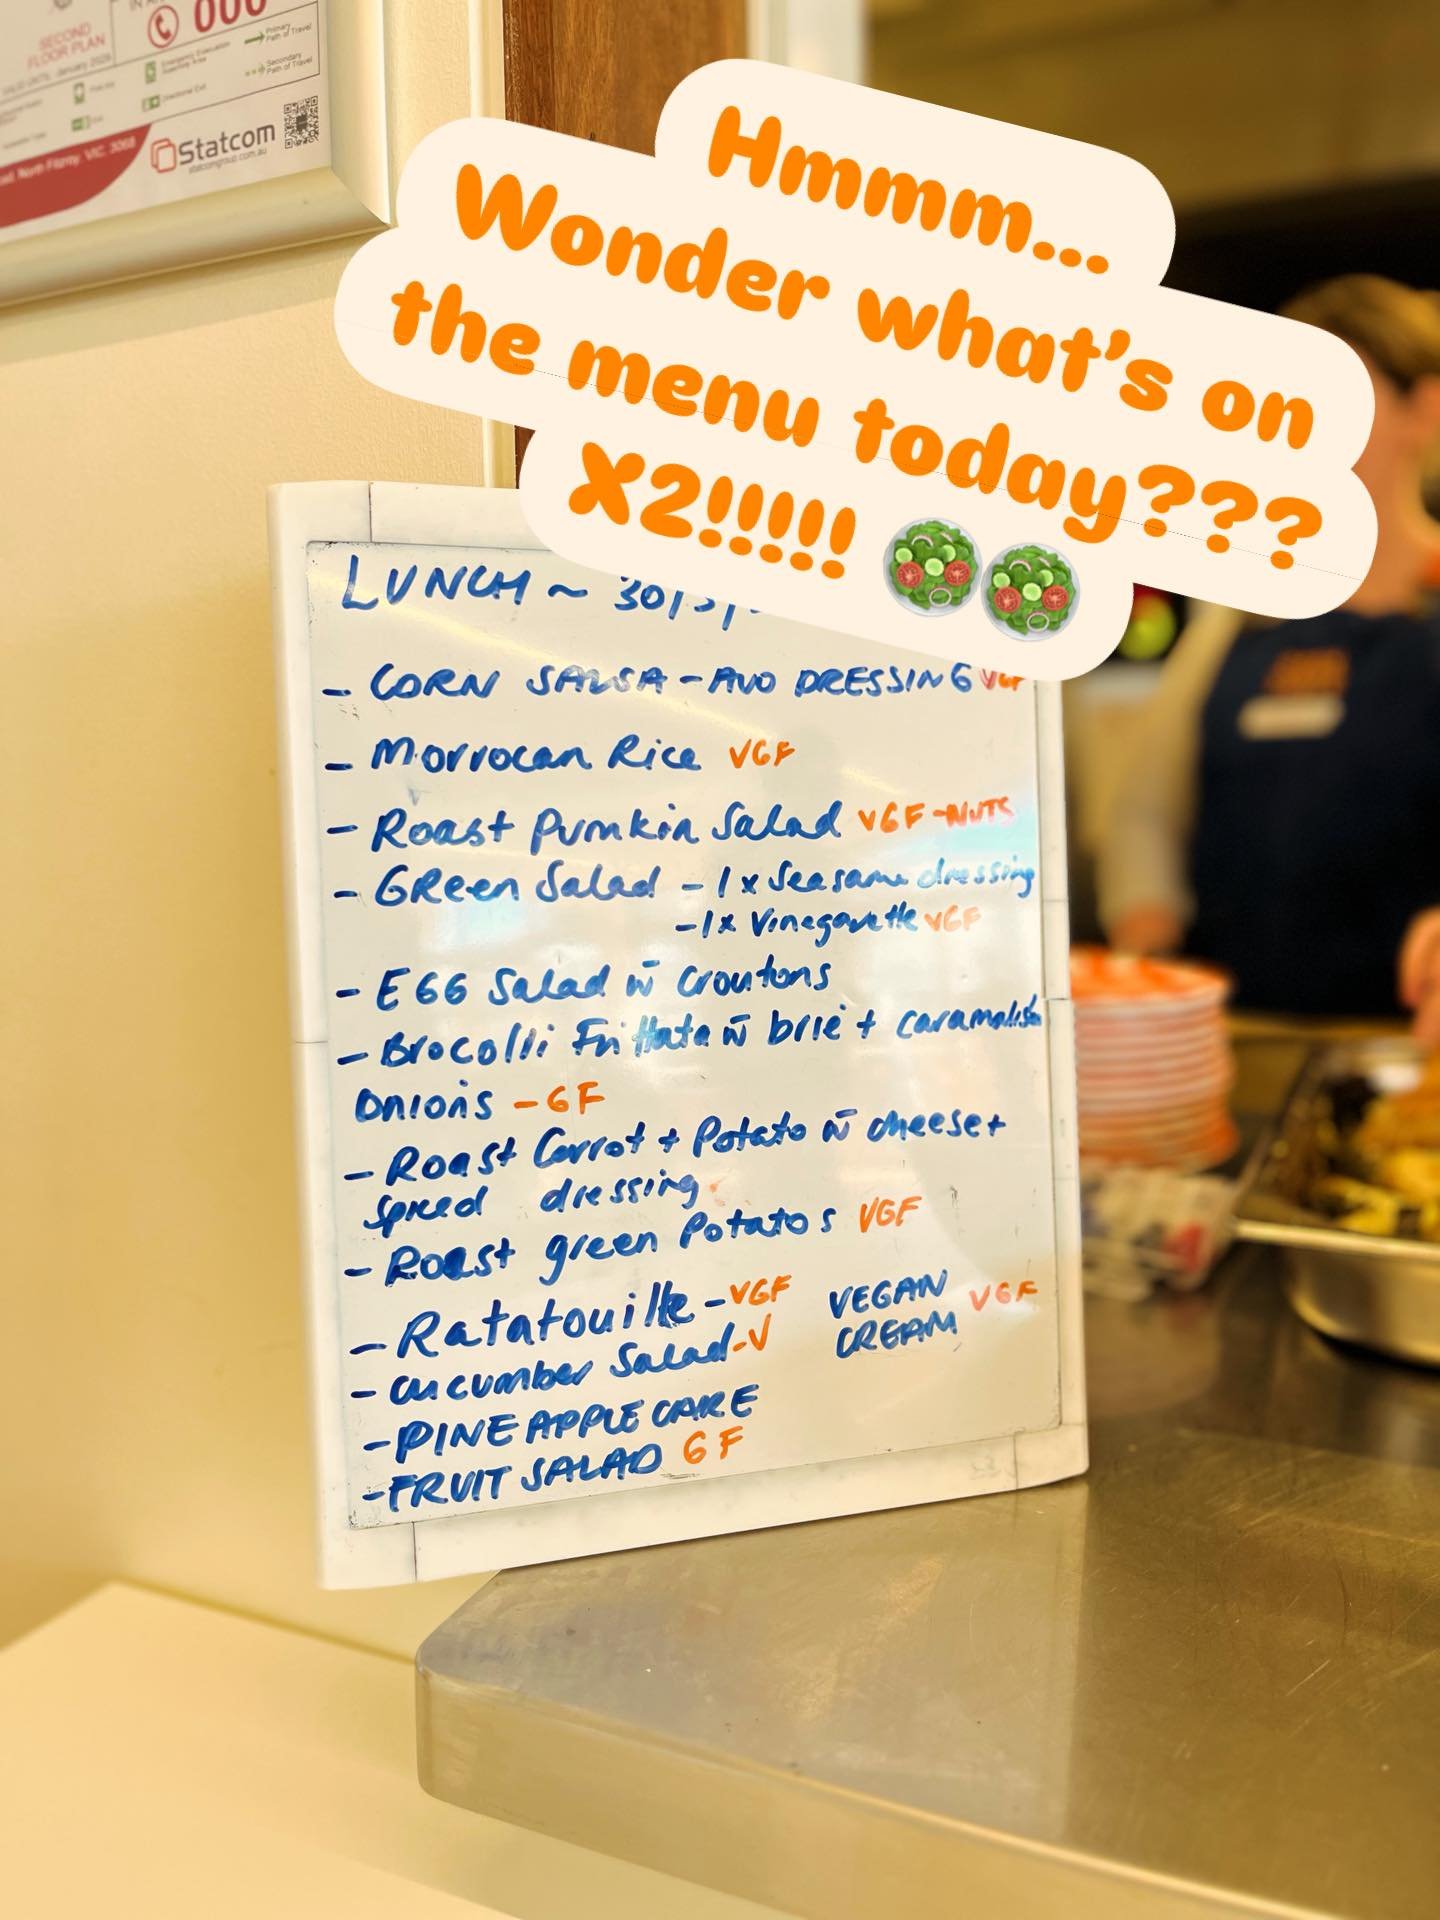 000
SECOND
FLOOR PLAN
Primary
Path of Travel
Secondary
Path of Travel
Statcom
statcomgroup.com.au
North Fitzroy, VIC, 3068
Hmmm...
Wonder what's on
the menu today???
X2!!!!!
LUNCH ~ 30/5/
- CORN SALSA - AVO DRESSING VGF
- Morrocan Rice VGF
- Roast Pumkin Salad VGF -NUTS
- Green Salad - 1 x Seasame dressing
- 1x Vinegarette VGF
- EGG Salad w̄ croutons
- Brocolli Frittata w̄ brie + caramalised
Onions - GF
- Roast Carrot + Potato w̄ cheese +
Spiced dressing
- Roast green Potatos VGF
- Ratatouille - VGF
- cucumber Salad - V
VEGAN VGF
CREAM
- PINEAPPLE CAKE
- FRUIT SALAD GF